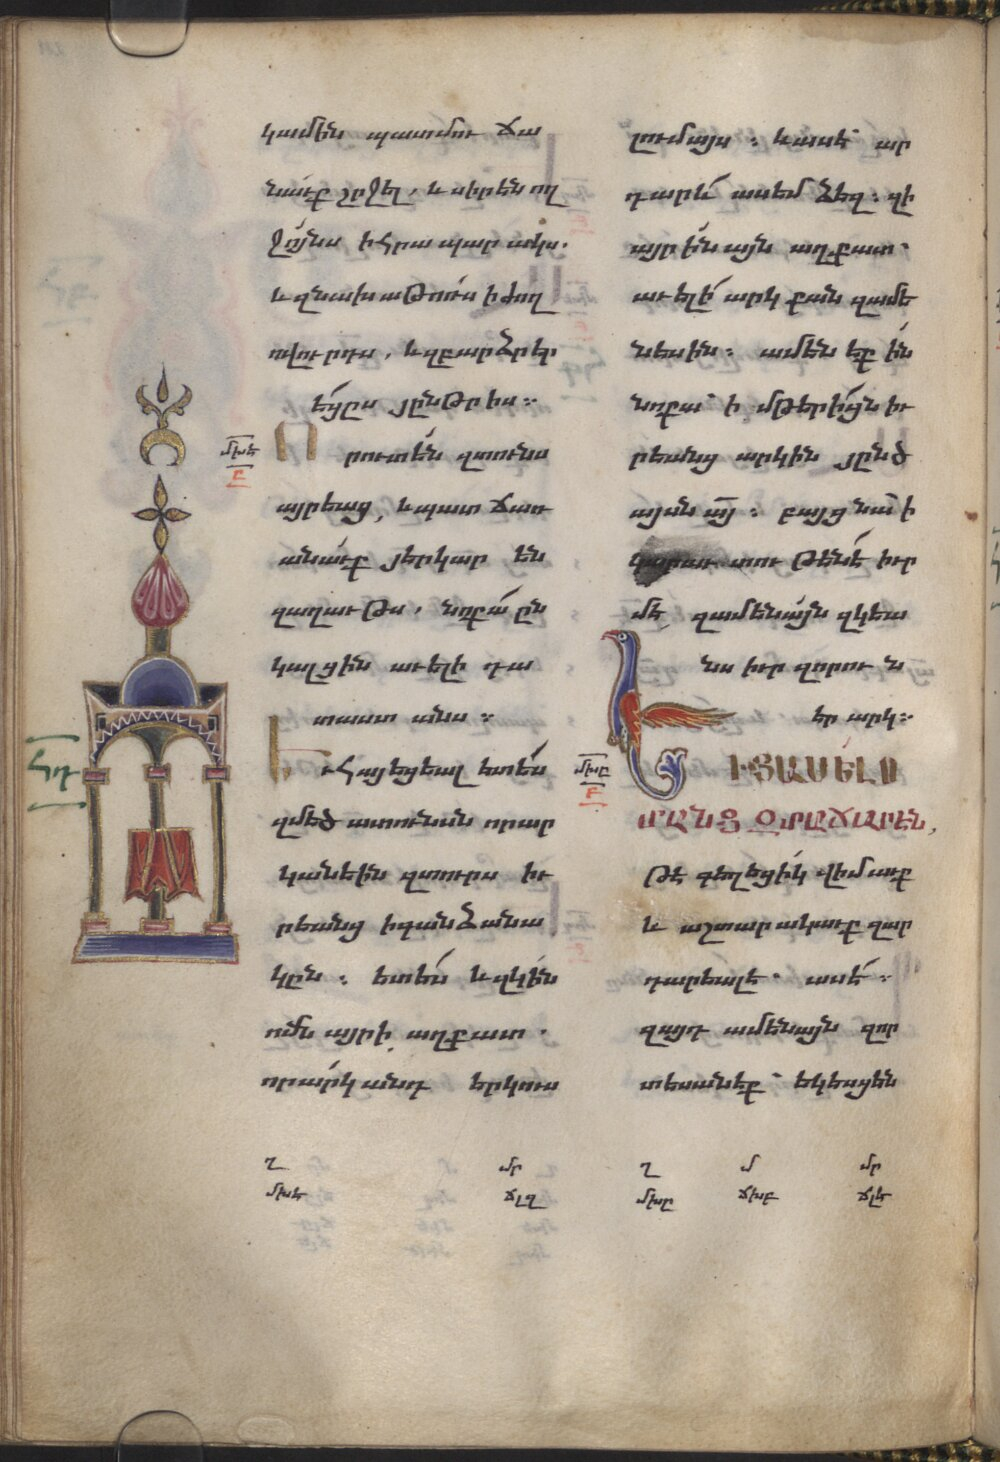 կամին պատմու ճա
նաւք շրջել, և սիրեն ող
ջոյնս ի հրապարակս.
և զնախաթոռս ի ժող
ովուրդս, և զբարձրեր
եցըս յընթրիս։
Ո րուտեն զտունս
այրեաց, և պատճառ
անաւք յերկար են
զաղաւթս, նոքա ըն
կալցին աւելի դա
տաստանս ։
Եւ հայեցեալ ետես
զմեծատունսն որ ար
կանեին զտուրս իւ
րեանց ի գանձանա
կըն ։ ետես և զկին
ոմն այրի աղքատ .
որ արկ անդ երկուս
մխե
Բ
հդ
լումայս ։ և ասե՝ ար
դարև ասեմ ձեզ ։ զի
այրին այն աղքատ՝
աւելի արկ քան զամե
նեսին ։ ամենեքին
նոքա՝ ի մթերիցն իւ
րեանց արկին յընծ
այսն այ ։ բայց նա ի
կարաւտութենէ իւր
մէ զամենայն զկեա
նս իւր զոր ուն
եր արկ։
Ի ՅԱՍԵԼ Ո
ՄԱՆՑ ԶՏԱՃԱՐԷՆ,
թէ գեղեցիկ վիմաւք
և աշտարակաւք զար
դարեալ է. ասէ ։
զայդ ամենայն զոր
տեսանէք՝ եկեսցեն
մխը
Բ
Ղ մր
մխե ճլզ
Ղ մ մր
մխը ճխբ ճլե